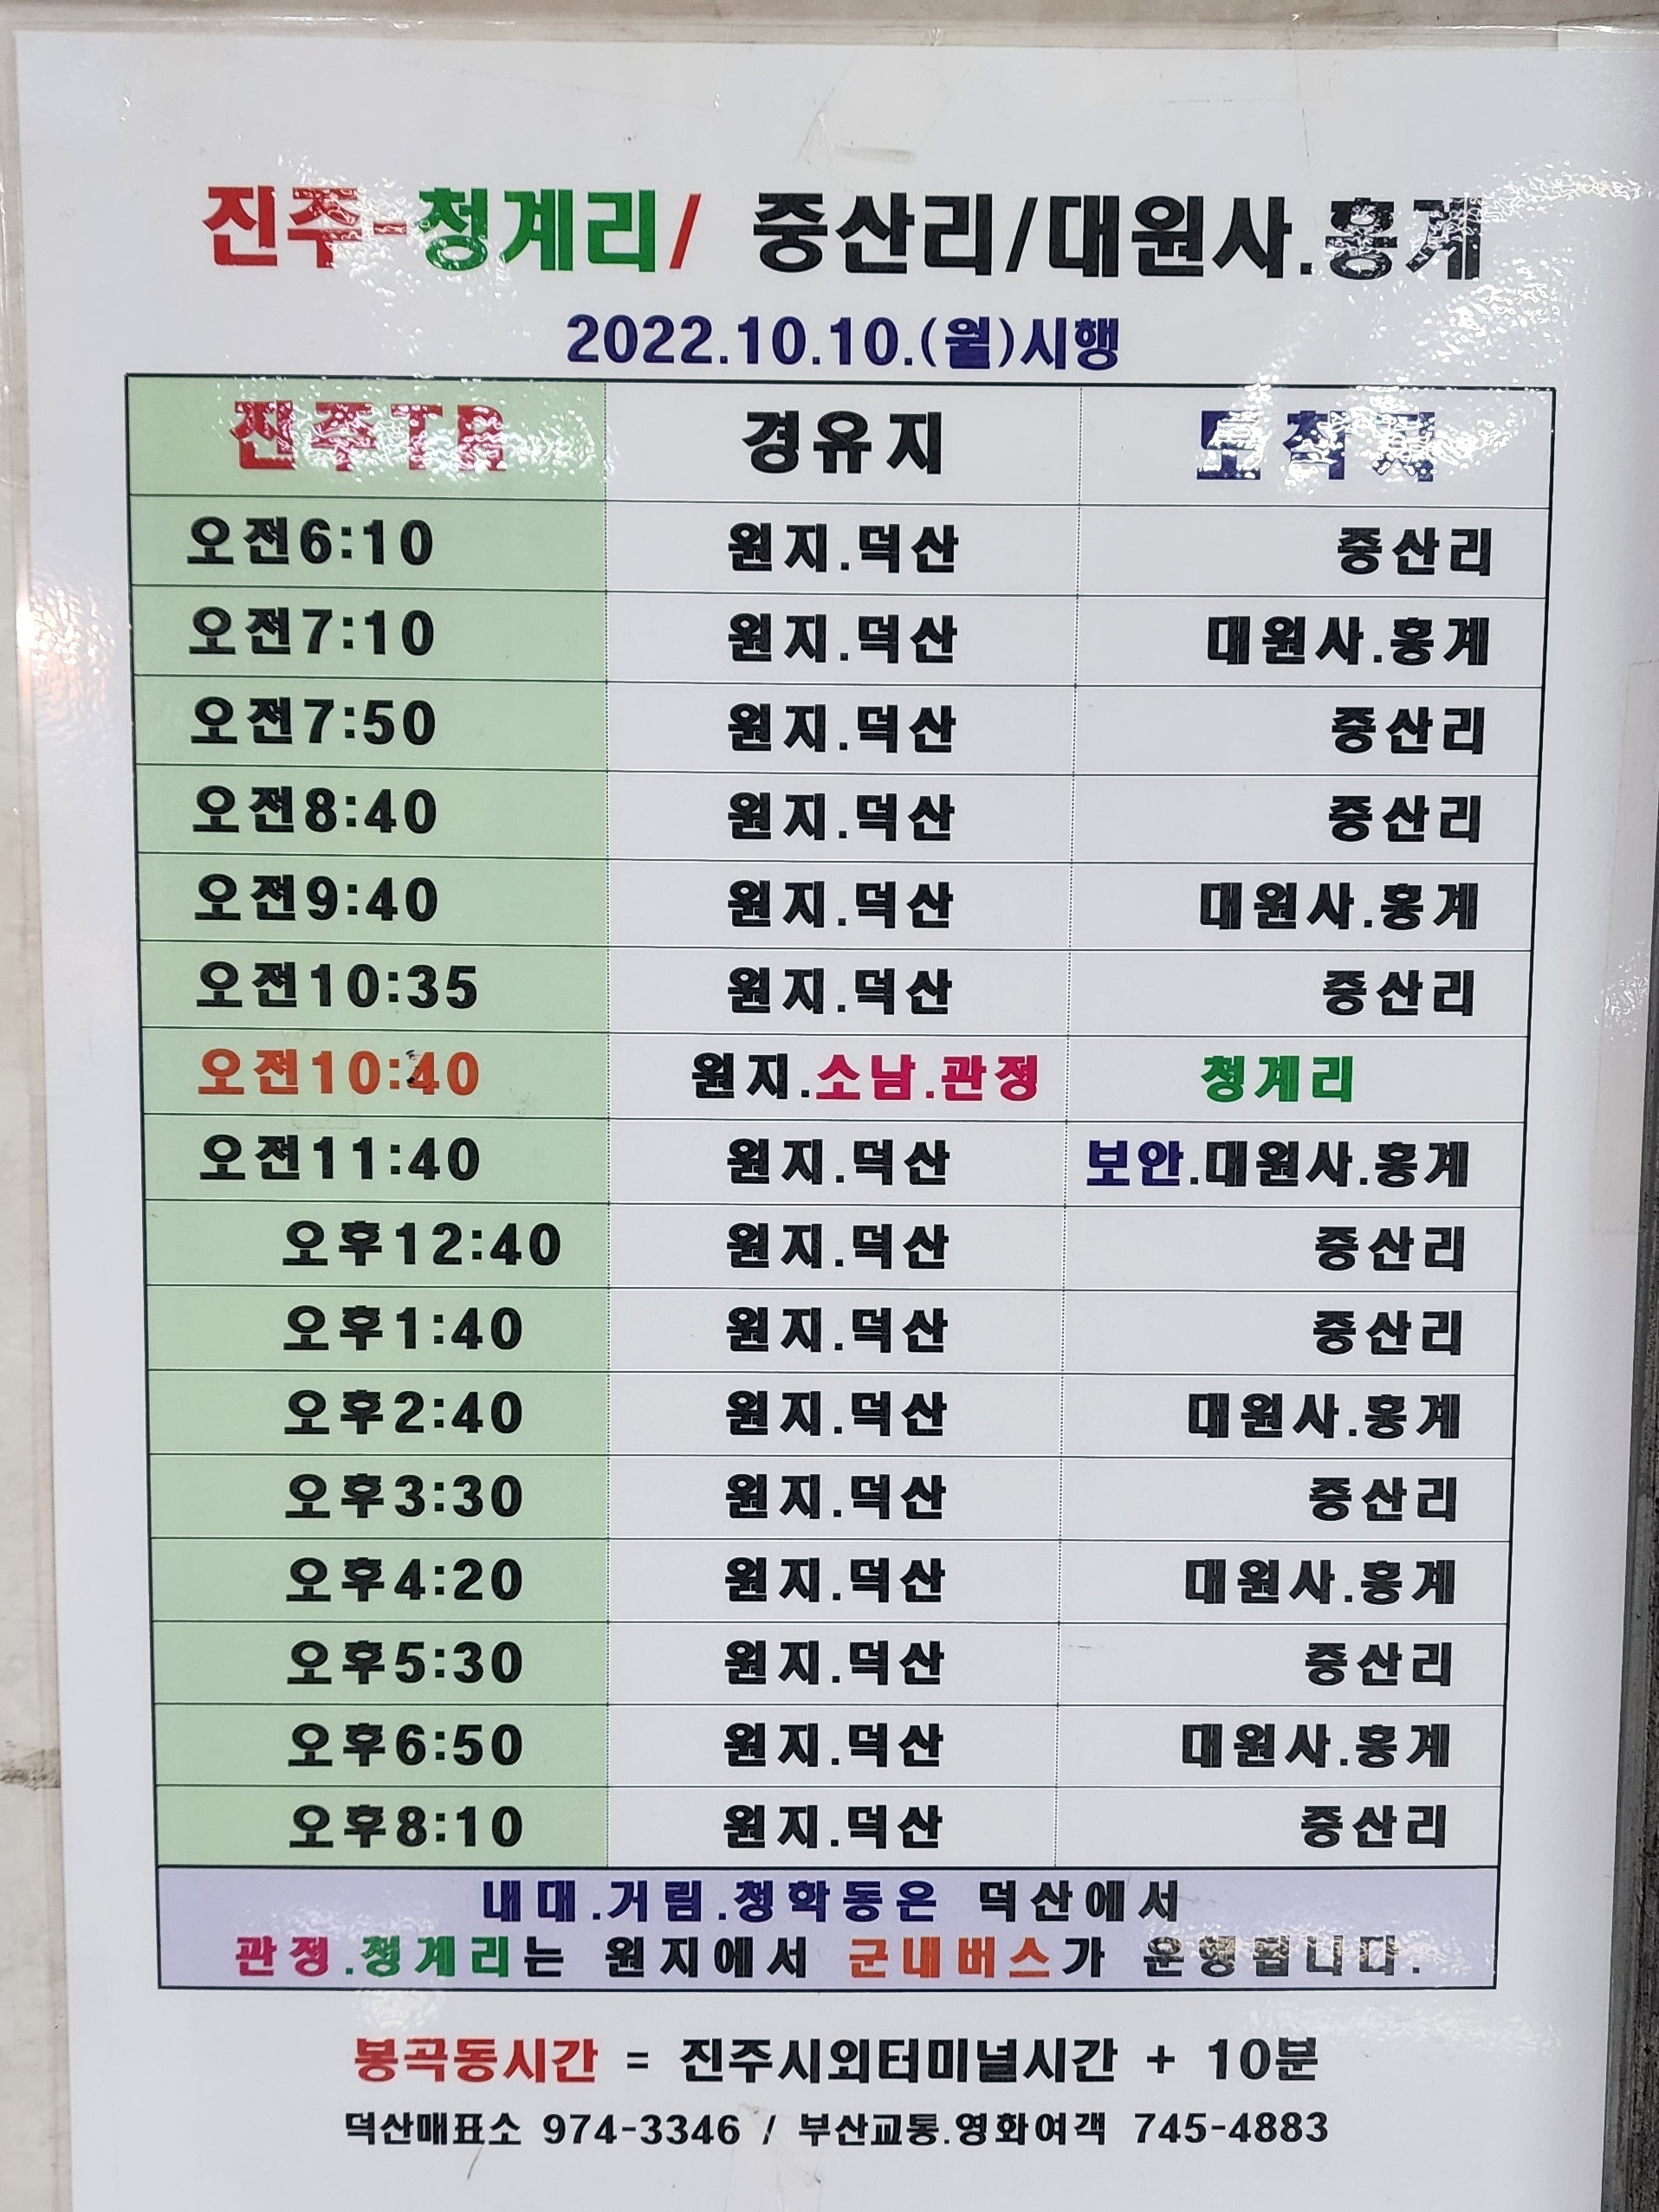 진주-청계리/ 중산리/대원사.홍계
2022.10.10.(월)시행
진주TR 경유지 도착지
오전6:10 원지.덕산 중산리
오전7:10 원지.덕산 대원사.홍계
오전7:50 원지.덕산 중산리
오전8:40 원지.덕산 중산리
오전9:40 원지.덕산 대원사.홍계
오전10:35 원지.덕산 중산리
오전10:40 원지.소남.관정 청계리
오전11:40 원지.덕산 보안.대원사.홍계
오후12:40 원지.덕산 중산리
오후1:40 원지.덕산 중산리
오후2:40 원지.덕산 대원사.홍계
오후3:30 원지.덕산 중산리
오후4:20 원지.덕산 대원사.홍계
오후5:30 원지.덕산 중산리
오후6:50 원지.덕산 대원사.홍계
오후8:10 원지.덕산 중산리
내대.거림.청학동은 덕산에서
관정.청계리는 원지에서 군내버스가 운행됩니다.
봉곡동시간 = 진주시외터미널시간 + 10분
덕산매표소 974-3346 / 부산교통.영화여객 745-4883